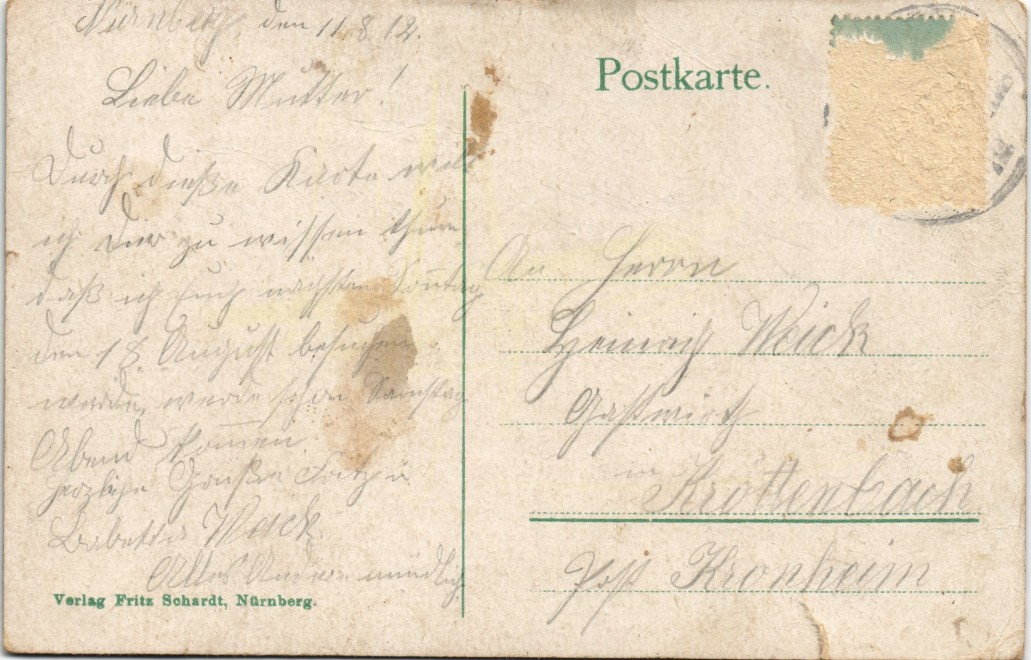 Nürnberg, den 11.8.12.
Liebe Mutter!
Durch dieße Karte will
ich Dir zu wissen thun,
daß ich Euch nächsten Sonntag
den 18 August besuchen
werde, werde schon Samstag
Abend kommen
herzliche Grüße Fritz u
Babetta Weick.
Alles Andere mündlich
Verlag Fritz Schardt, Nürnberg.
Postkarte.
An Herrn
Heinrich Weick
Gastwirth
in Krottenbach
Post Kronheim